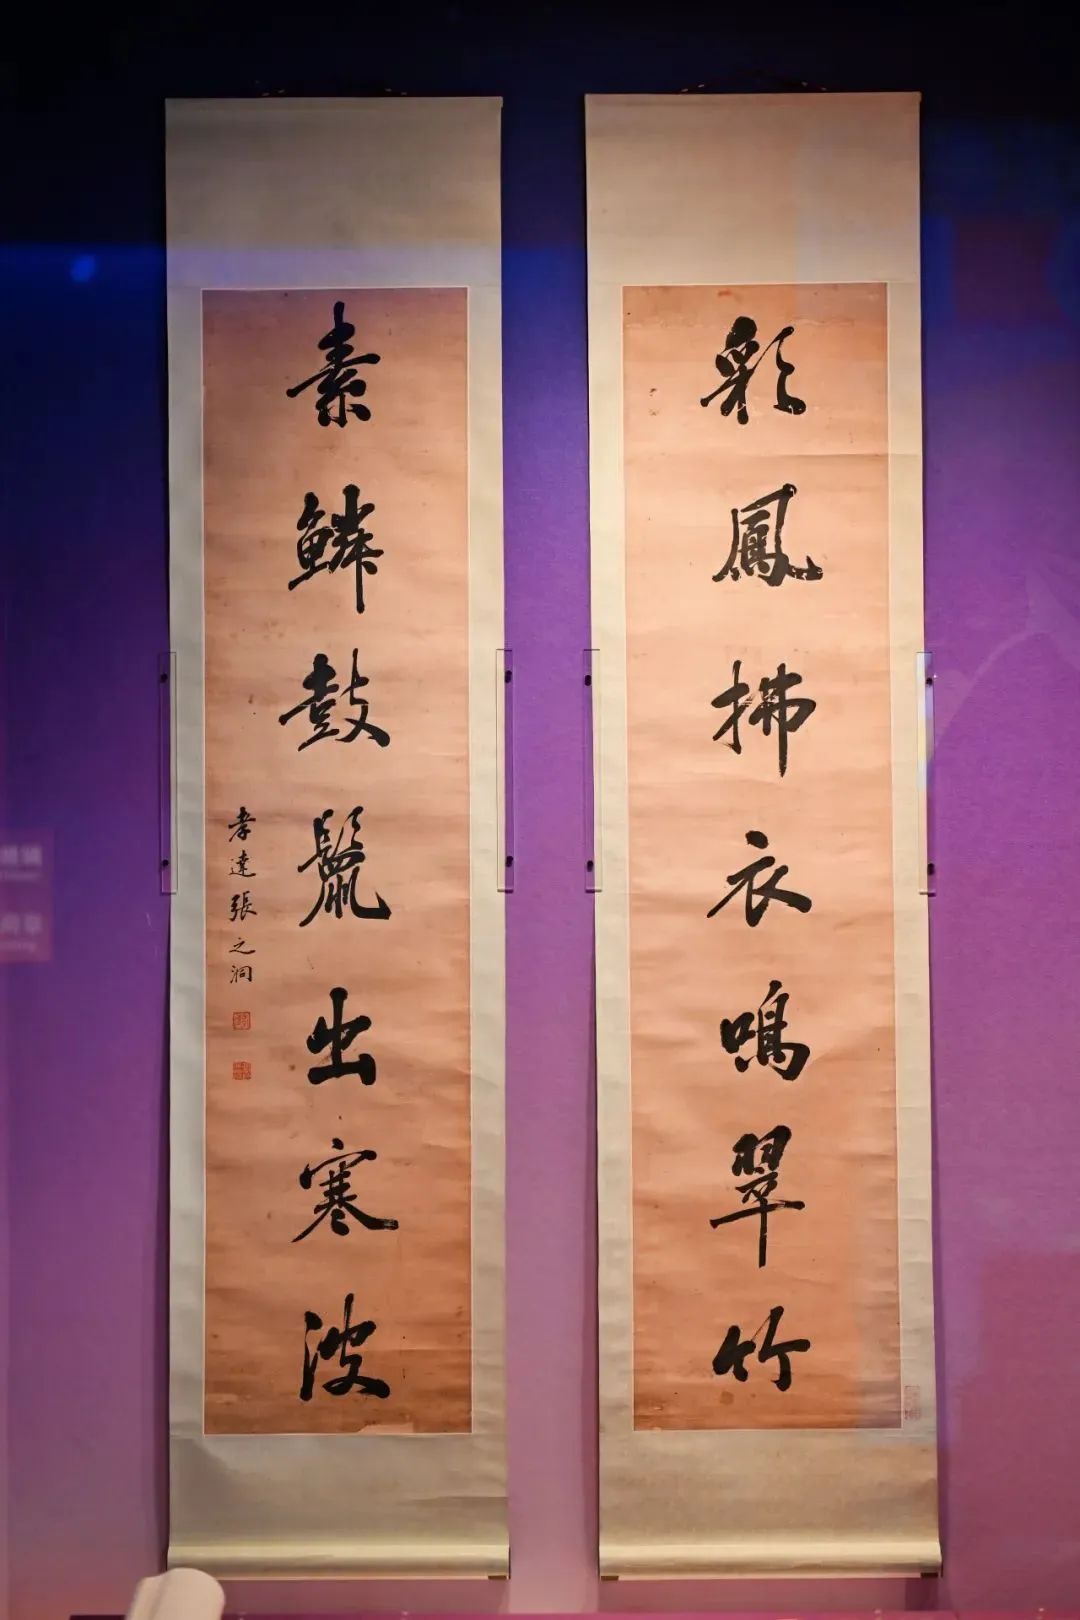 彩鳳拂衣鳴翠竹
素鱗鼓鬣出寒波
孝達張之洞